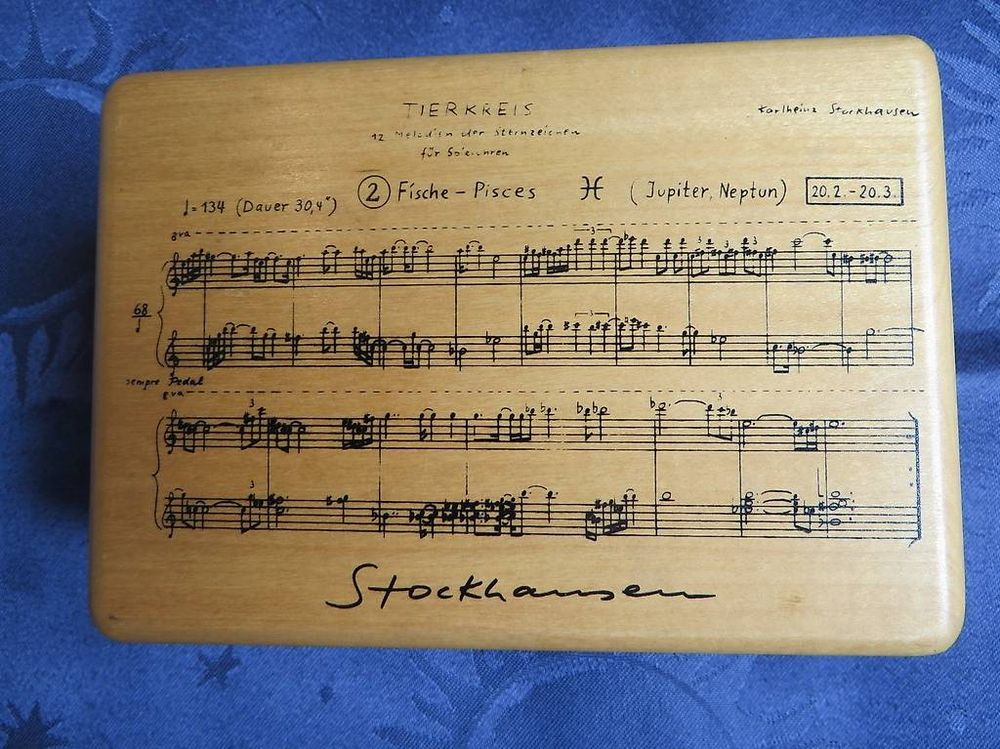 TIERKREIS
Karlheinz Stockhausen
12 Melodien der Sternzeichen
für Spieluhren
② Fische – Pisces ♓ (Jupiter, Neptun) 20.2.–20.3.
♩= 134 (Dauer 30,4")
8va
3 3 3 3
68
3
sempre Pedal
8va
3 3
3
Stockhausen